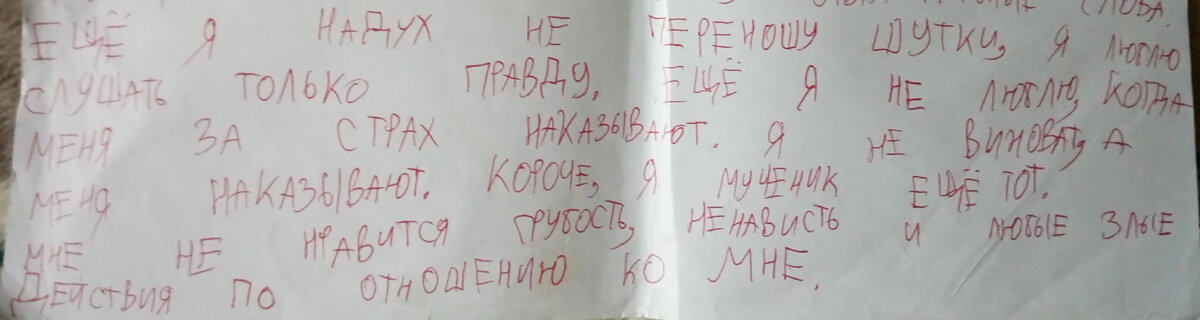 СЛОВА.
ЕЩЁ Я НАДУХ НЕ ПЕРЕНОШУ ШУТКИ, Я ЛЮБЛЮ
СЛУШАТЬ ТОЛЬКО ПРАВДУ. ЕЩЁ Я НЕ ЛЮБЛЮ, КОГДА
МЕНЯ ЗА СТРАХ НАКАЗЫВАЮТ. Я НЕ ВИНОВАТ, А
МЕНЯ НАКАЗЫВАЮТ. КОРОЧЕ, Я МУЧЕНИК ЕЩЁ ТОТ.
МНЕ НЕ НРАВИТСЯ ГРУБОСТЬ, НЕНАВИСТЬ И ЛЮБЫЕ ЗЛЫЕ
ДЕЙСТВИЯ ПО ОТНОШЕНИЮ КО МНЕ.